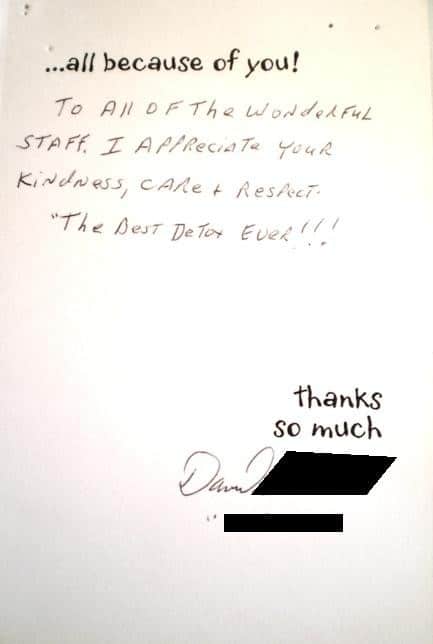 ...all because of you!
To All OF The WONDeRFuL
STAFF. I APPReciaTe youR
KiNdNess, CARe + Respect.
"The Best DeTox EveR!!!
thanks
so much
David